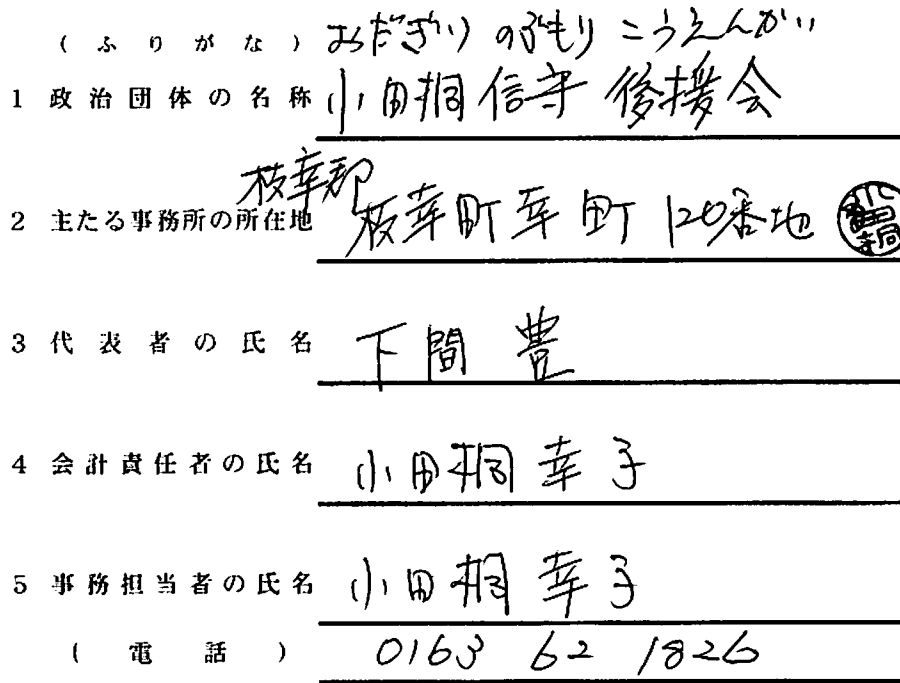 (ふりがな) おだぎり のぶもり こうえんかい
1 政治団体の名称 小田桐信守 後援会
枝幸郡
2 主たる事務所の所在地 枝幸町幸町120番地
3 代表者の氏名 下間 豊
4 会計責任者の氏名 小田桐 幸子
5 事務担当者の氏名 小田桐 幸子
(電話) 0163 62 1826